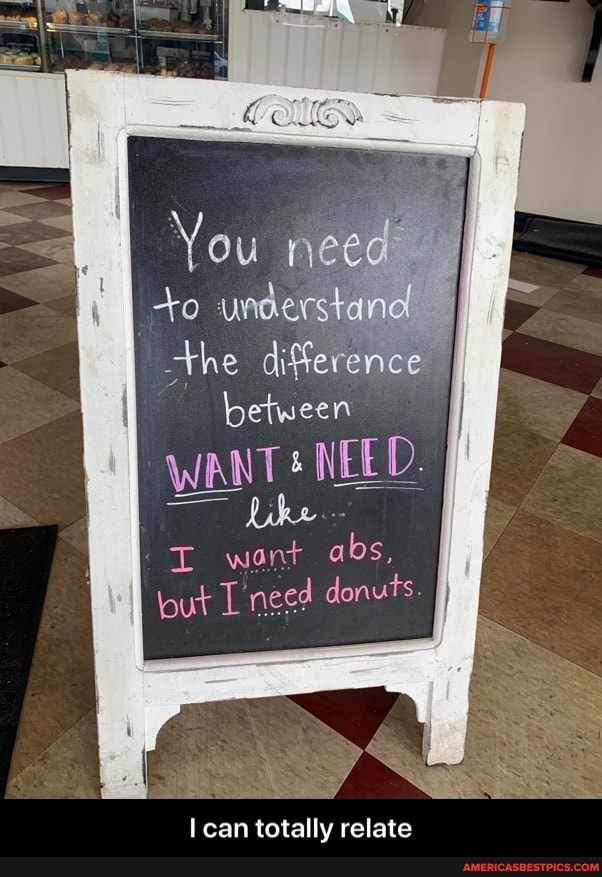 You need
to understand
the difference
between
WANT & NEED.
like...
I want abs,
but I need donuts.
I can totally relate
AMERICASBESTPICS.COM